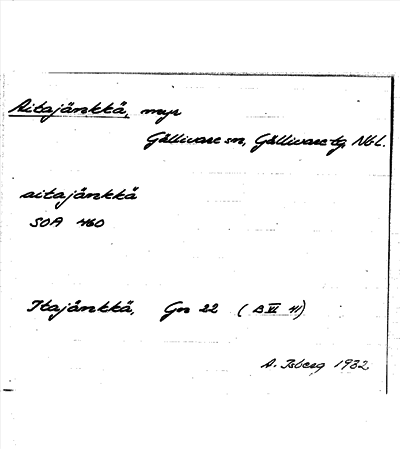 Aitajänkkä, myr
Gällivare sn, Gällivare tg. Nbl.
aitajänkkä
SOA 460
Itajänkkä, Gn 22 (B VI 41)
A. Isberg 1932